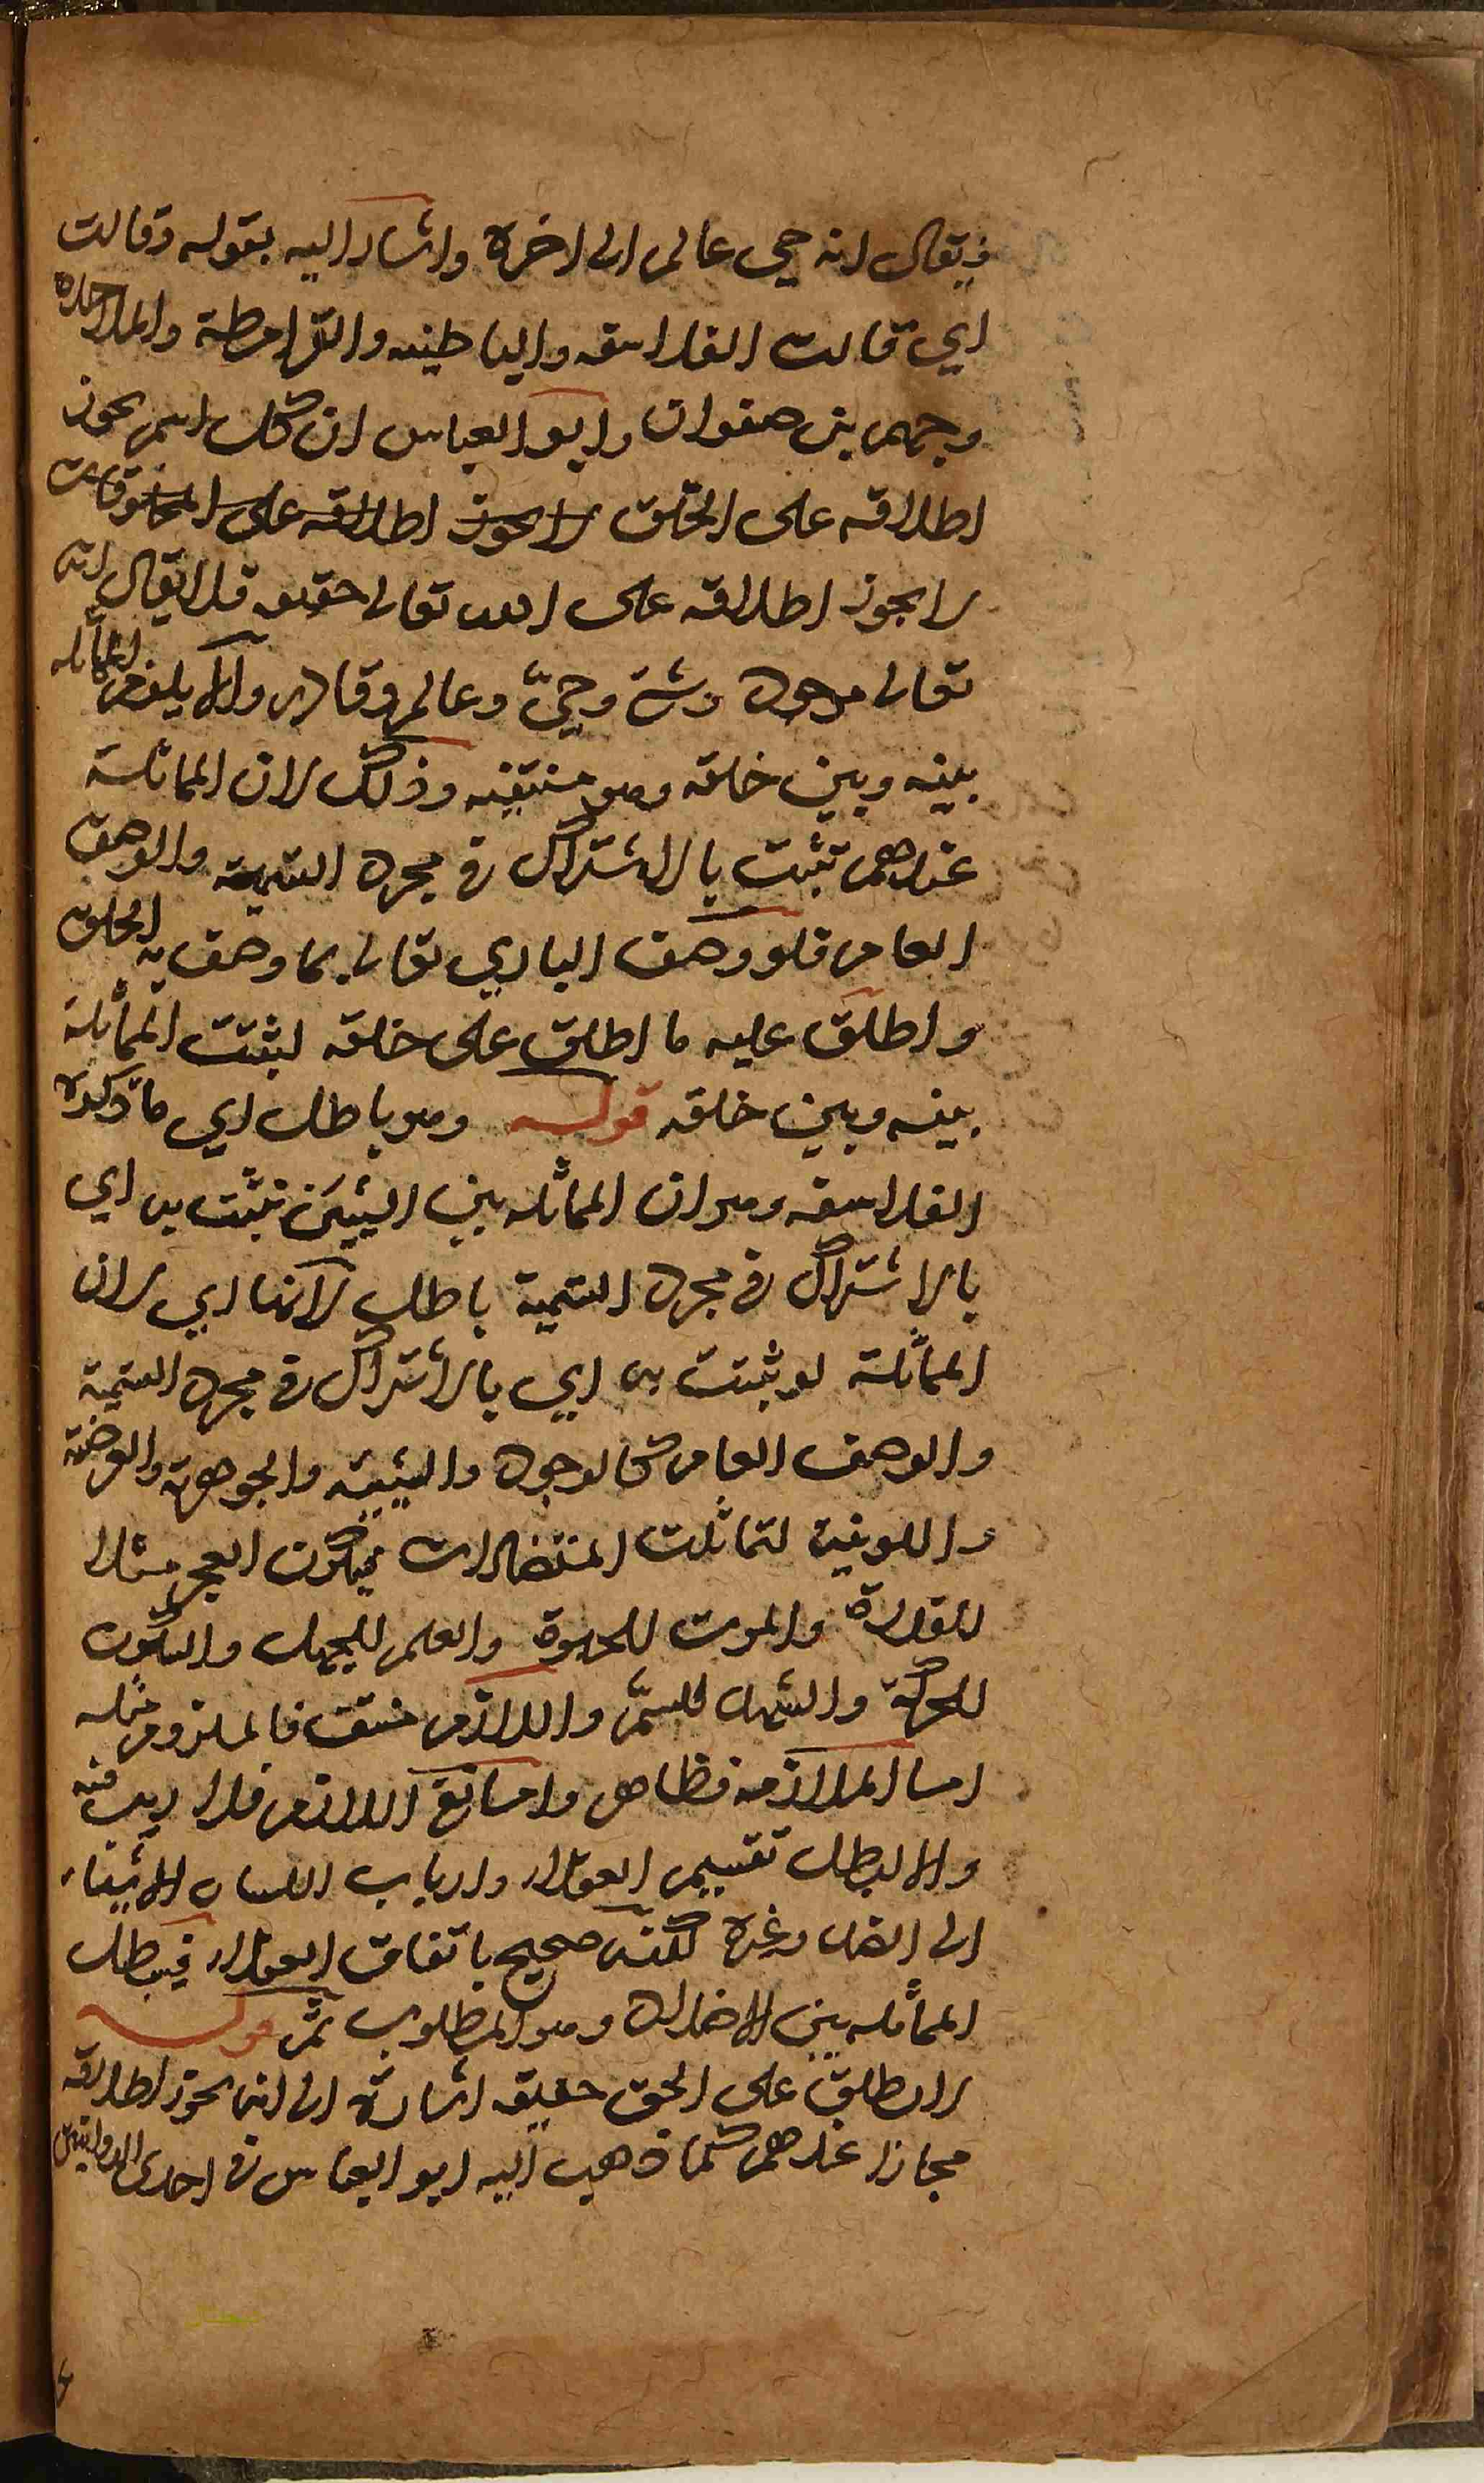 فيقال انه حي عالم الى اخره واشار اليه بقوله وقالت
اي قالت الفلاسفه والباطنيه والقرامطة والملاحدة
وجهم بن صفوان وابو العباس ان كل اسم يجوز
اطلاقه على الخلق لا يجوز اطلاقه على المخلوقات
لا يجوز اطلاقه على الله تعالى حقيقه فلا يقال انه
تعالى موجود وشئ وحيّ وعالم وقادر والا يلزم المماثله
بينه وبين خلقه وهو منتفيه وذلك لان المماثلة
عندهم تثبت بالاشتراك في مجرد التسمية والوصف
العام فلو وصف الباري تعالى بما وصف به الخلق
واطلق عليه ما اطلق على خلقه لثبتت المماثلة
بينه وبين خلقه قوله وهو باطل اي ما ذكره
الفلاسفه وهو ان المماثله بين الشيئين تثبت به اي
بالاشتراك في مجرد التسمية باطل لانها اي لان
المماثلة لو ثبتت به اي بالاشتراك في مجرد التسمية
والوصف العام كالوجود والشيئيه والجوهرية والعرضية
واللونية لتماثلت المتضادات فيكون العجز مثلا
للقدرة والموت للحيوة والعلم للجهل والسكون
للحركة والشهد للسمّ واللازم منتف فالملزوم مثله
اما الملازمه فظاهر واما نفي اللازم فلا ريب فيه
والا لبطل تقسيم العقلاء وارباب اللسان الاشياء
الى الضد وغيره لكنه صحيح باتفاق العقلاء فيبطل
المماثله بين الاضداد وهو المطلوب ثم قوله
لا يطلق على الحق حقيقه اشارة الى انه يجوز اطلاقه
مجازا عندهم كما ذهب اليه ابو العباس في احدى الروايتين